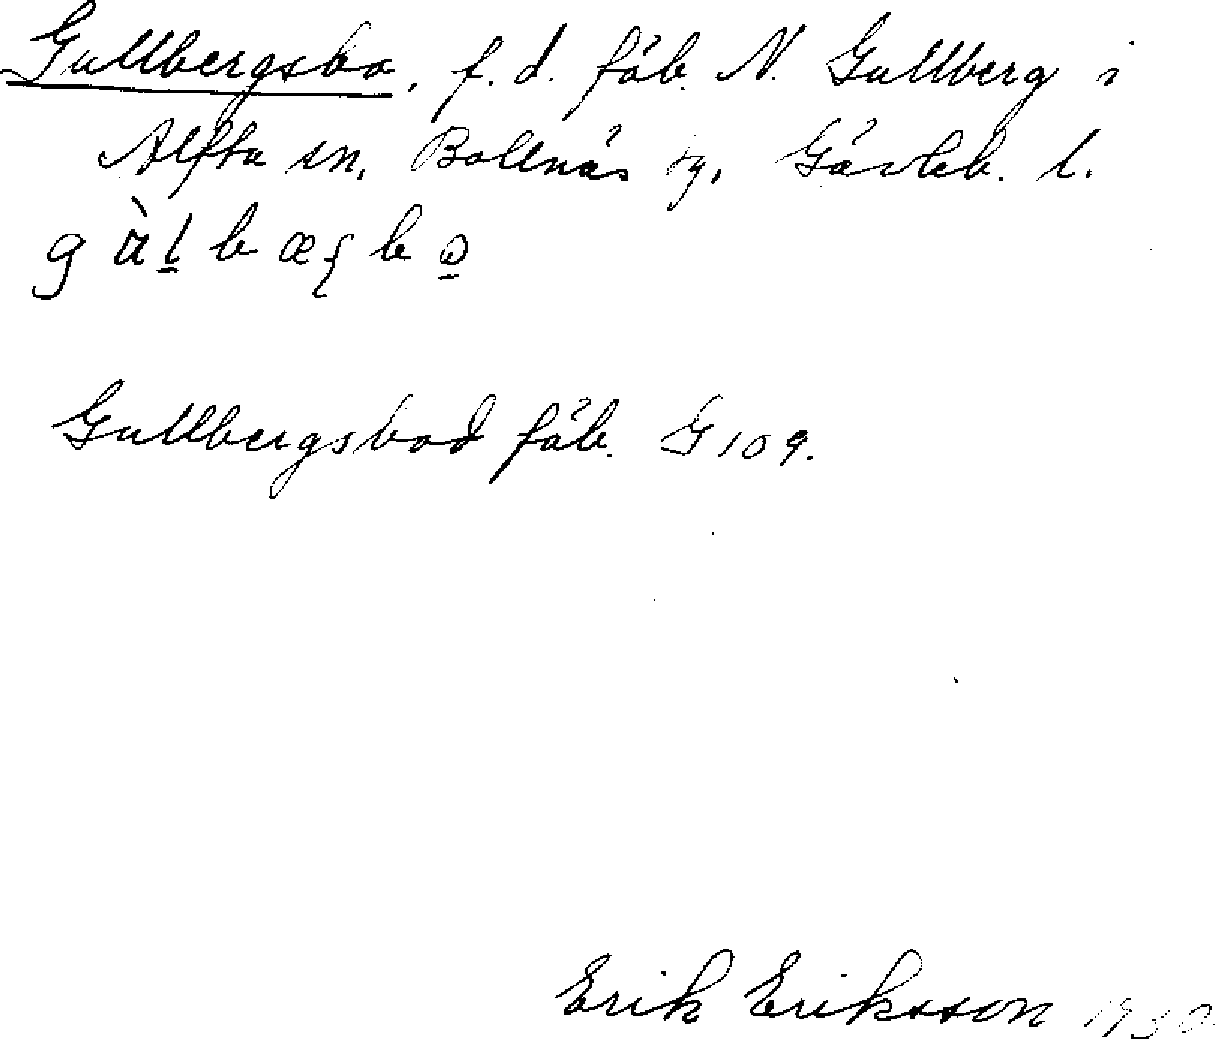 Gullbergsbo, f. d. fäb. N. Gullberg i
Alfta sn, Bollnäs tg, Gävleb. l.
Gullbergsbod fäb. G 109.
Erik Eriksson 1930